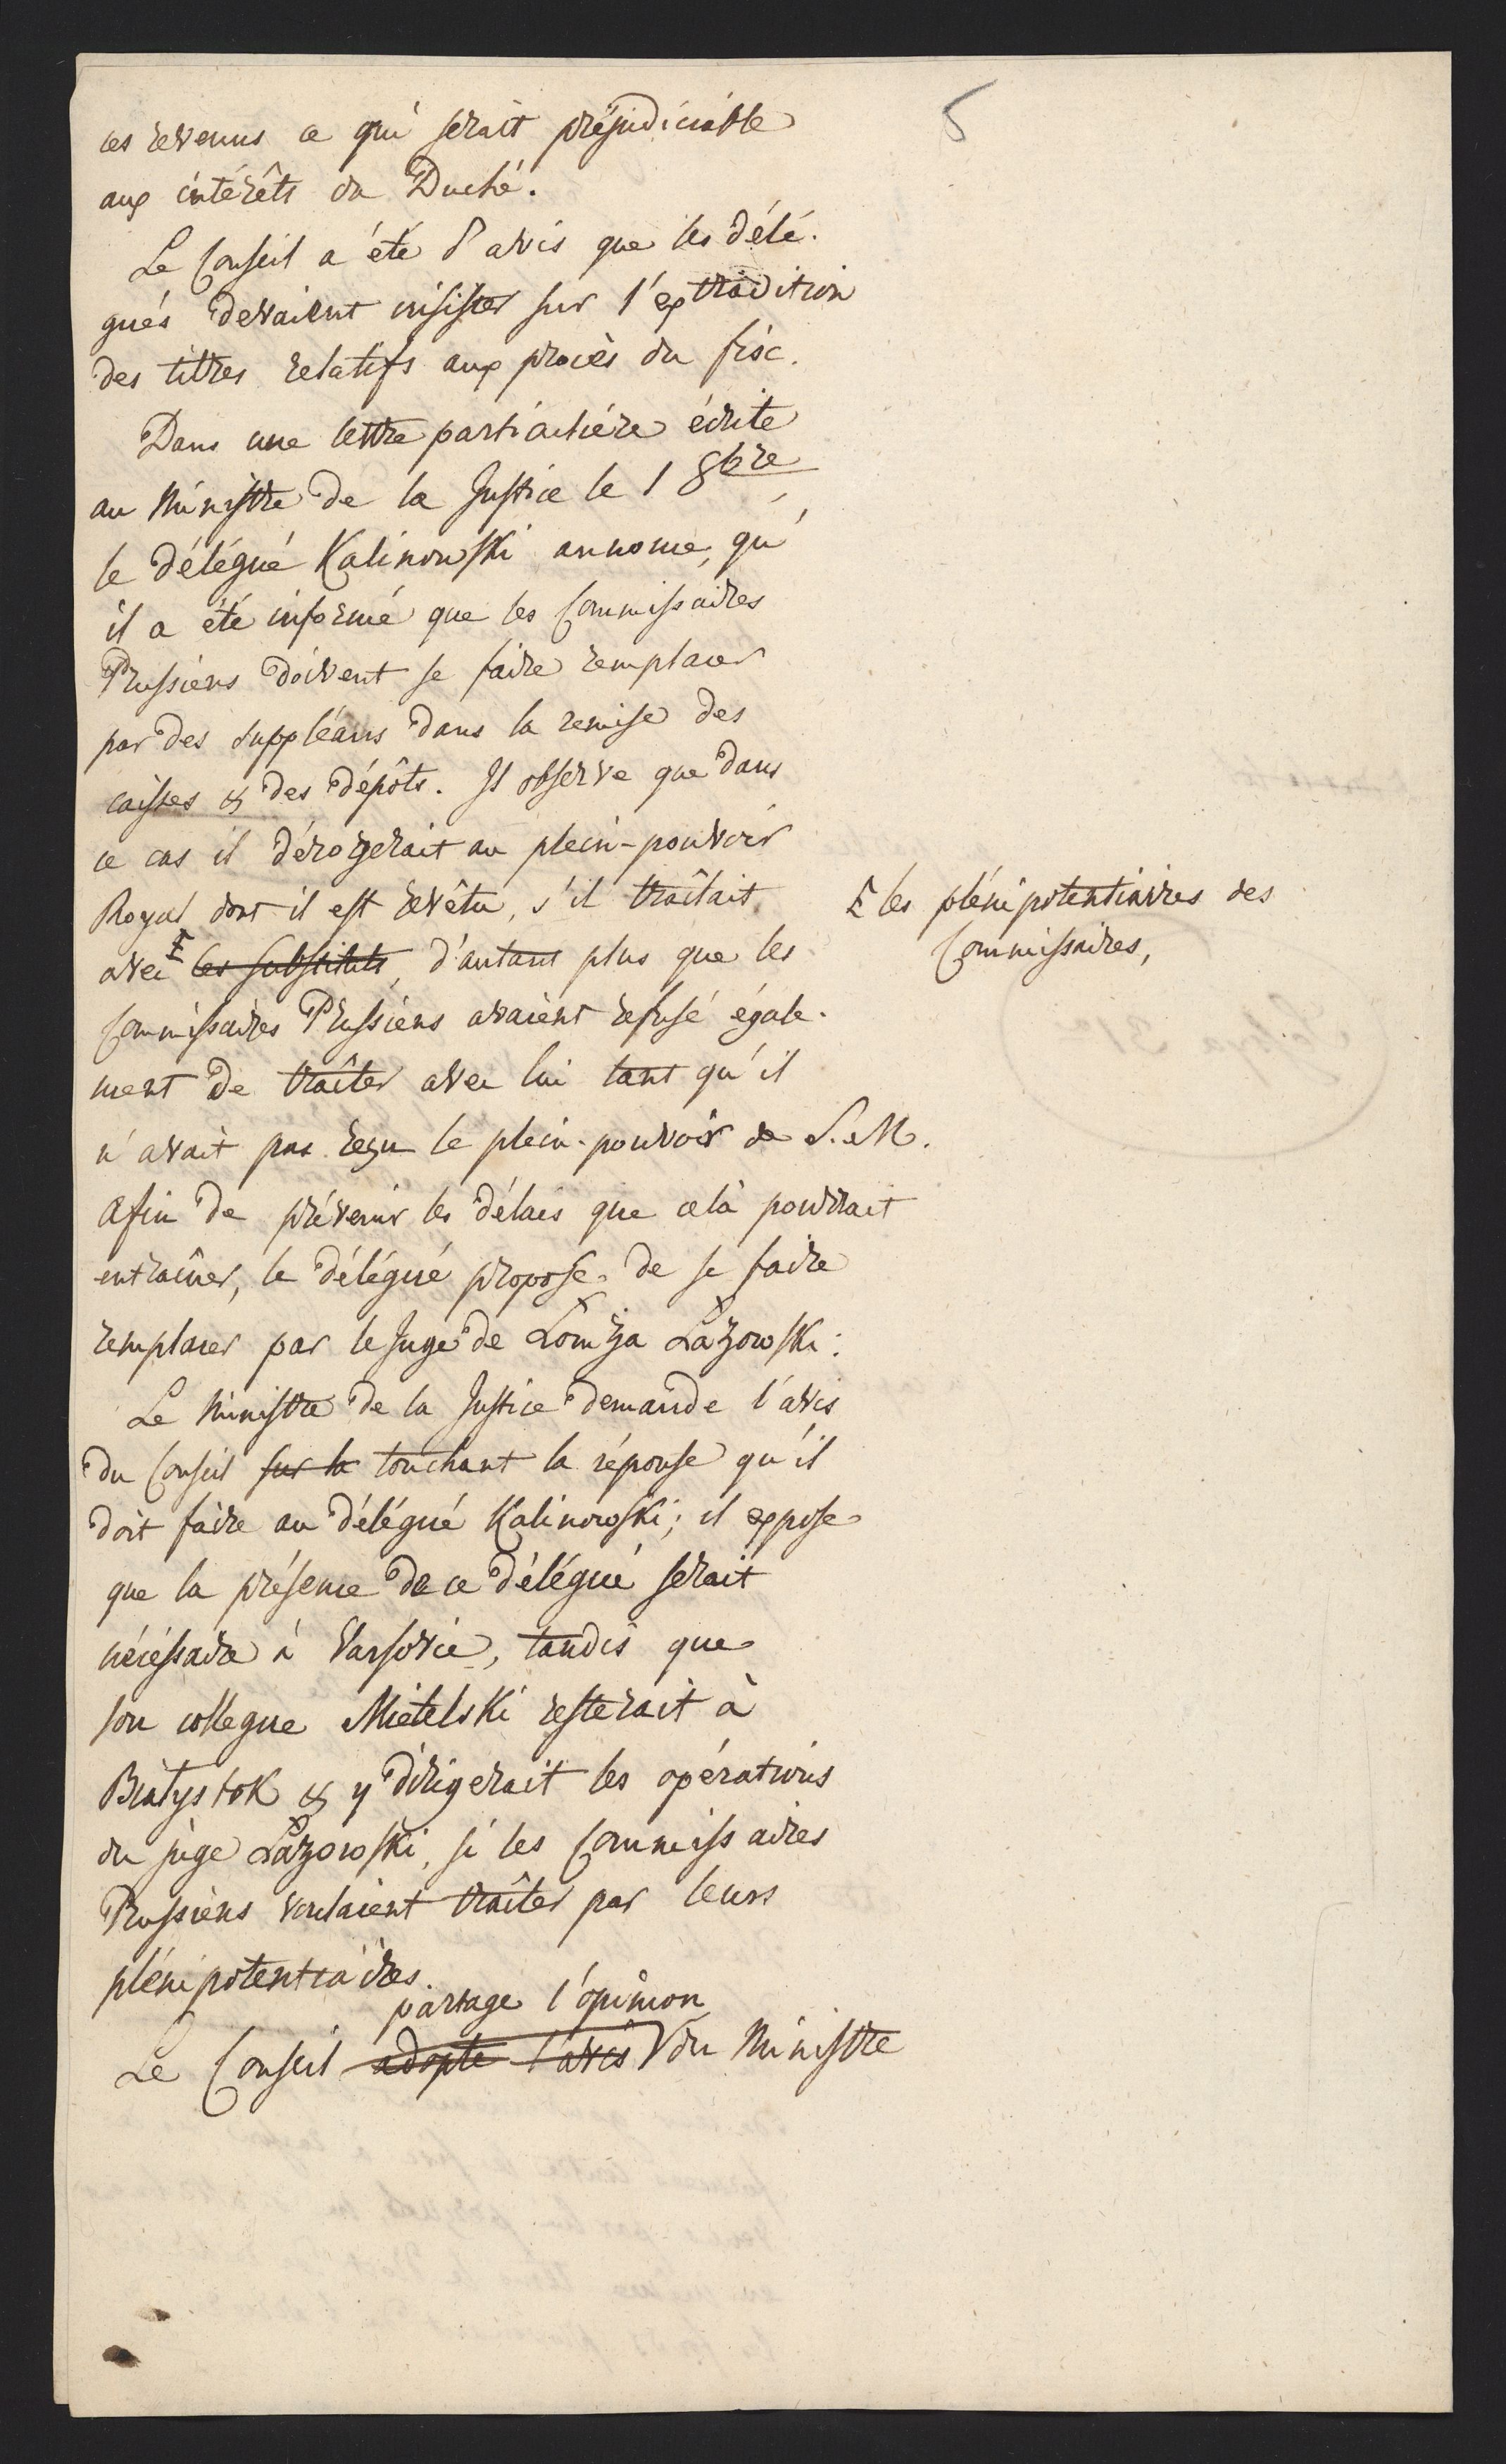 5
ces revenus ce qui serait préjudiciable
aux intérêts du Duché.
Le Conseil a été d'avis que les délé-
gués devaient insister sur l'extradition
des titres relatifs aux procès du fisc.
Dans une lettre particulière écrite
au Ministre de la Justice le 1 8bre,
le délégué Kalinowski annonce, qu'
il a été informé que les Commissaires
Prussiens doivent se faire remplacer
par des suppléans dans la remise des
caisses & des dépôts. Il observe que dans
ce cas il dérogerait au plein-pouvoir
Royal dont il est revêtu, s'il traîtait
avec les substituts, d'autant plus que les
les plénipotentiaires des
Commissaires,
Commissaires Prussiens avaient refusé égale-
ment de traîter avec lui tant qu'il
n'avait pas reçu le plein-pouvoir de S. M.
Afin de prévenir les délais que celà pourrait
entraîner, le délégué propose de se faire
remplacer par le Juge de Łomża Łazowski:
Le Ministre de la Justice demande l'avis
du Conseil sur la touchant la réponse qu'il
doit faire au délégué Kalinowski; il expose
que la présence de ce délégué serait
nécéssaire à Varsovie, tandis que
son collegue Mietelski resterait à
Białystok & y dirigerait les opérations
du juge Łazowski, si les Commissaires
Prussiens voulaient traîter par leurs
plénipotentiaires.
partage l'opinion
Le Conseil adopte l'avis du Ministre